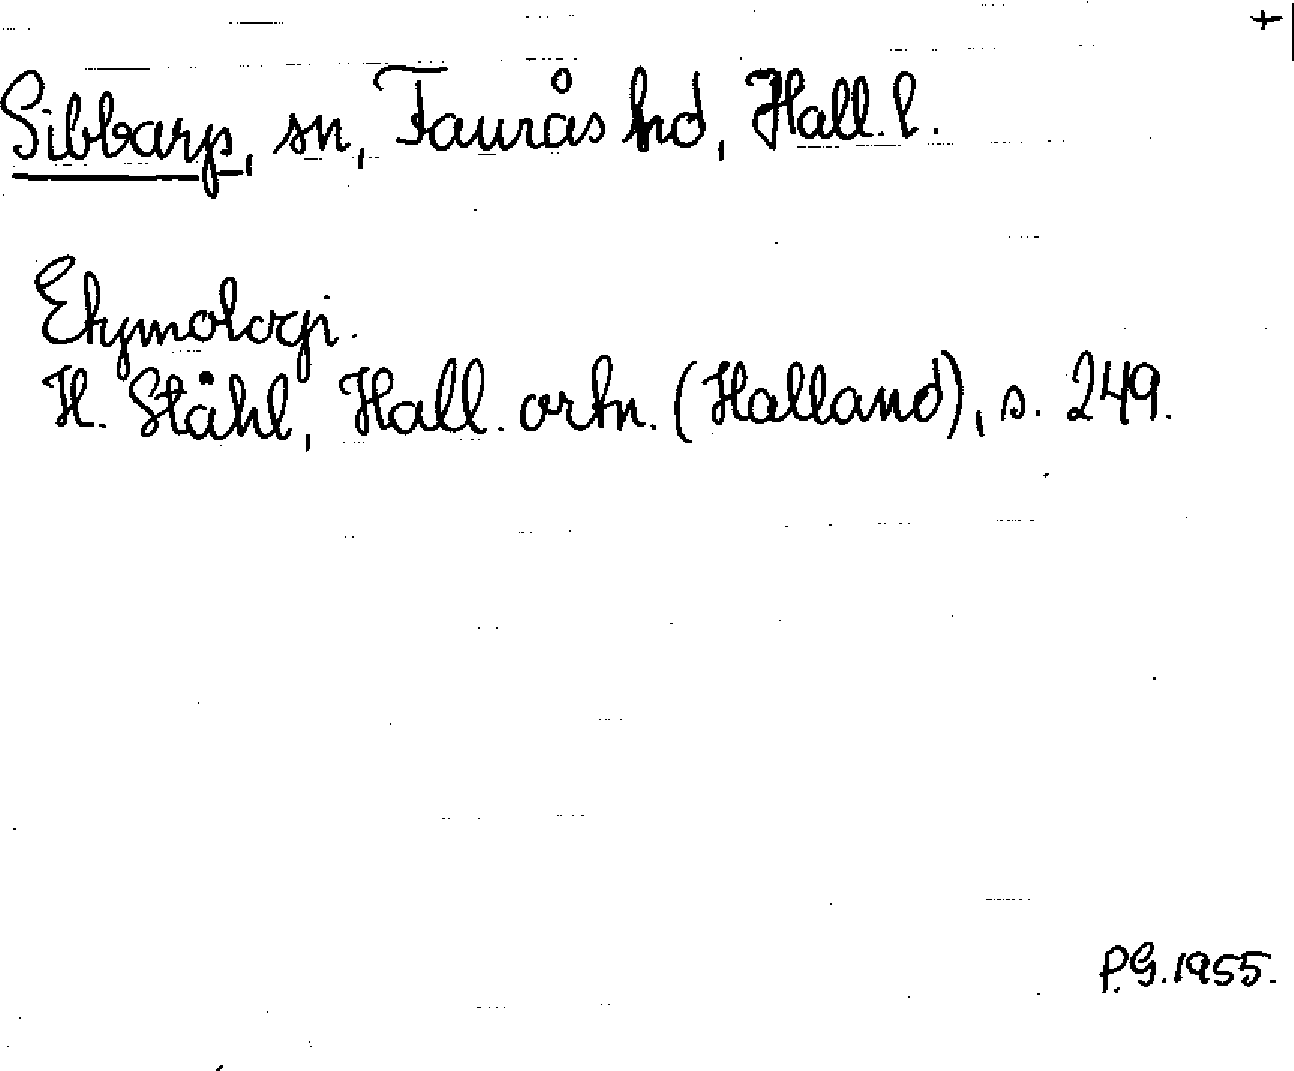 +
Sibbarp, sn, Faurås hd, Hall. l.
Etymologi.
H. Ståhl, Hall. ortn. (Halland), s. 249.
P.G. 1955.